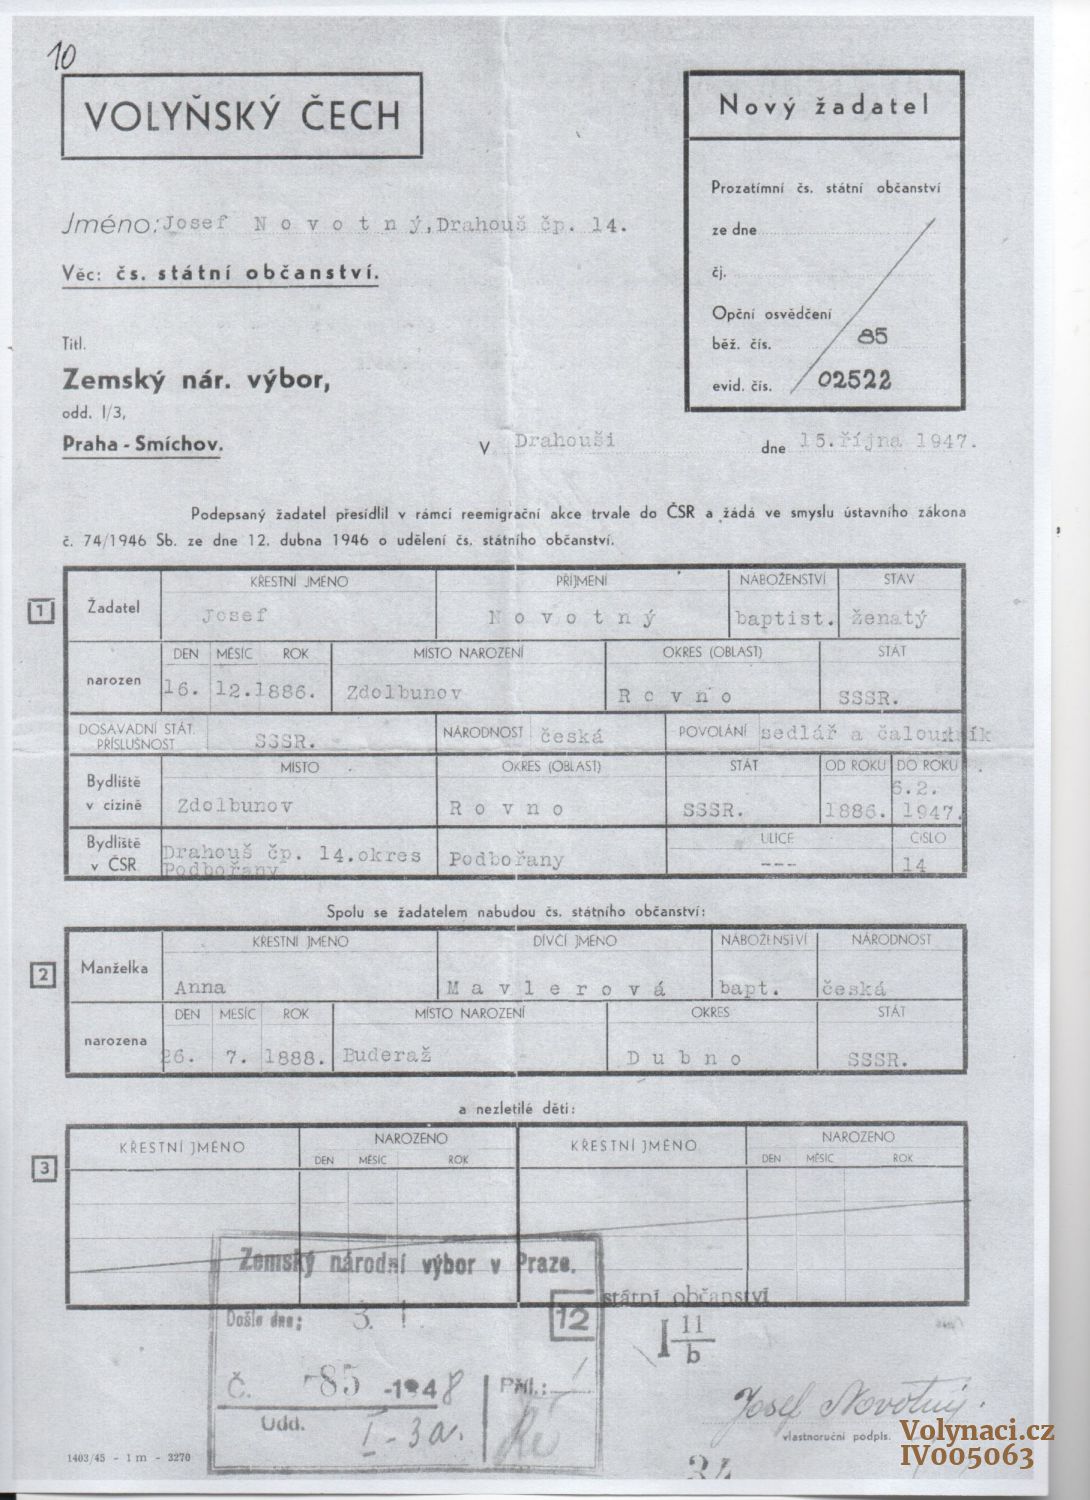 10
VOLYŇSKÝ ČECH
Nový žadatel
Prozatímní čs. státní občanství
ze dne
čj.
Opční osvědčení
běž. čís. 85
evid. čís. 02522
Jméno: Josef Novotný, Drahouš čp. 14.
Věc: čs. státní občanství.
Titl.
Zemský nár. výbor,
odd. I/3,
Praha - Smíchov.
V Drahouši dne 15. října 1947.
Podepsaný žadatel přesídlil v rámci reemigrační akce trvale do ČSR a žádá ve smyslu ústavního zákona
č. 74/1946 Sb. ze dne 12. dubna 1946 o udělení čs. státního občanství.
1
Žadatel
KŘESTNÍ JMÉNO PŘÍJMENÍ NÁBOŽENSTVÍ STAV
Josef Novotný baptist. ženatý
narozen
DEN MĚSÍC ROK MÍSTO NAROZENÍ OKRES (OBLAST) STÁT
16. 12. 1886. Zdolbunov Rovno SSSR.
DOSAVADNÍ STÁT. PŘÍSLUŠNOST SSSR. NÁRODNOST česká POVOLÁNÍ sedlář a čalouník
Bydliště v cizině
MÍSTO OKRES (OBLAST) STÁT OD ROKU DO ROKU
Zdolbunov Rovno SSSR. 1886. 6.2. 1947.
Bydliště v ČSR
ULICE ČÍSLO
Drahouš čp. 14. okres Podbořany Podbořany --- 14
Spolu se žadatelem nabudou čs. státního občanství:
2
Manželka
KŘESTNÍ JMÉNO DÍVČÍ JMÉNO NÁBOŽENSTVÍ NÁRODNOST
Anna Mavlerová bapt. česká
narozena
DEN MĚSÍC ROK MÍSTO NAROZENÍ OKRES STÁT
26. 7. 1888. Buderaž Dubno SSSR.
a nezletilé děti:
3
KŘESTNÍ JMÉNO NAROZENO KŘESTNÍ JMÉNO NAROZENO
DEN MĚSÍC ROK DEN MĚSÍC ROK
Zemský národní výbor v Praze.
Došlo dne: 3. 1.
12
státní občanství
I 11/b
Č. -85 -1948 Příl.:
Odd. I-3a.
Josef Novotný.
vlastnoruční podpis.
1403/45 - 1 m - 3270
34
Volynaci.cz
IV005063